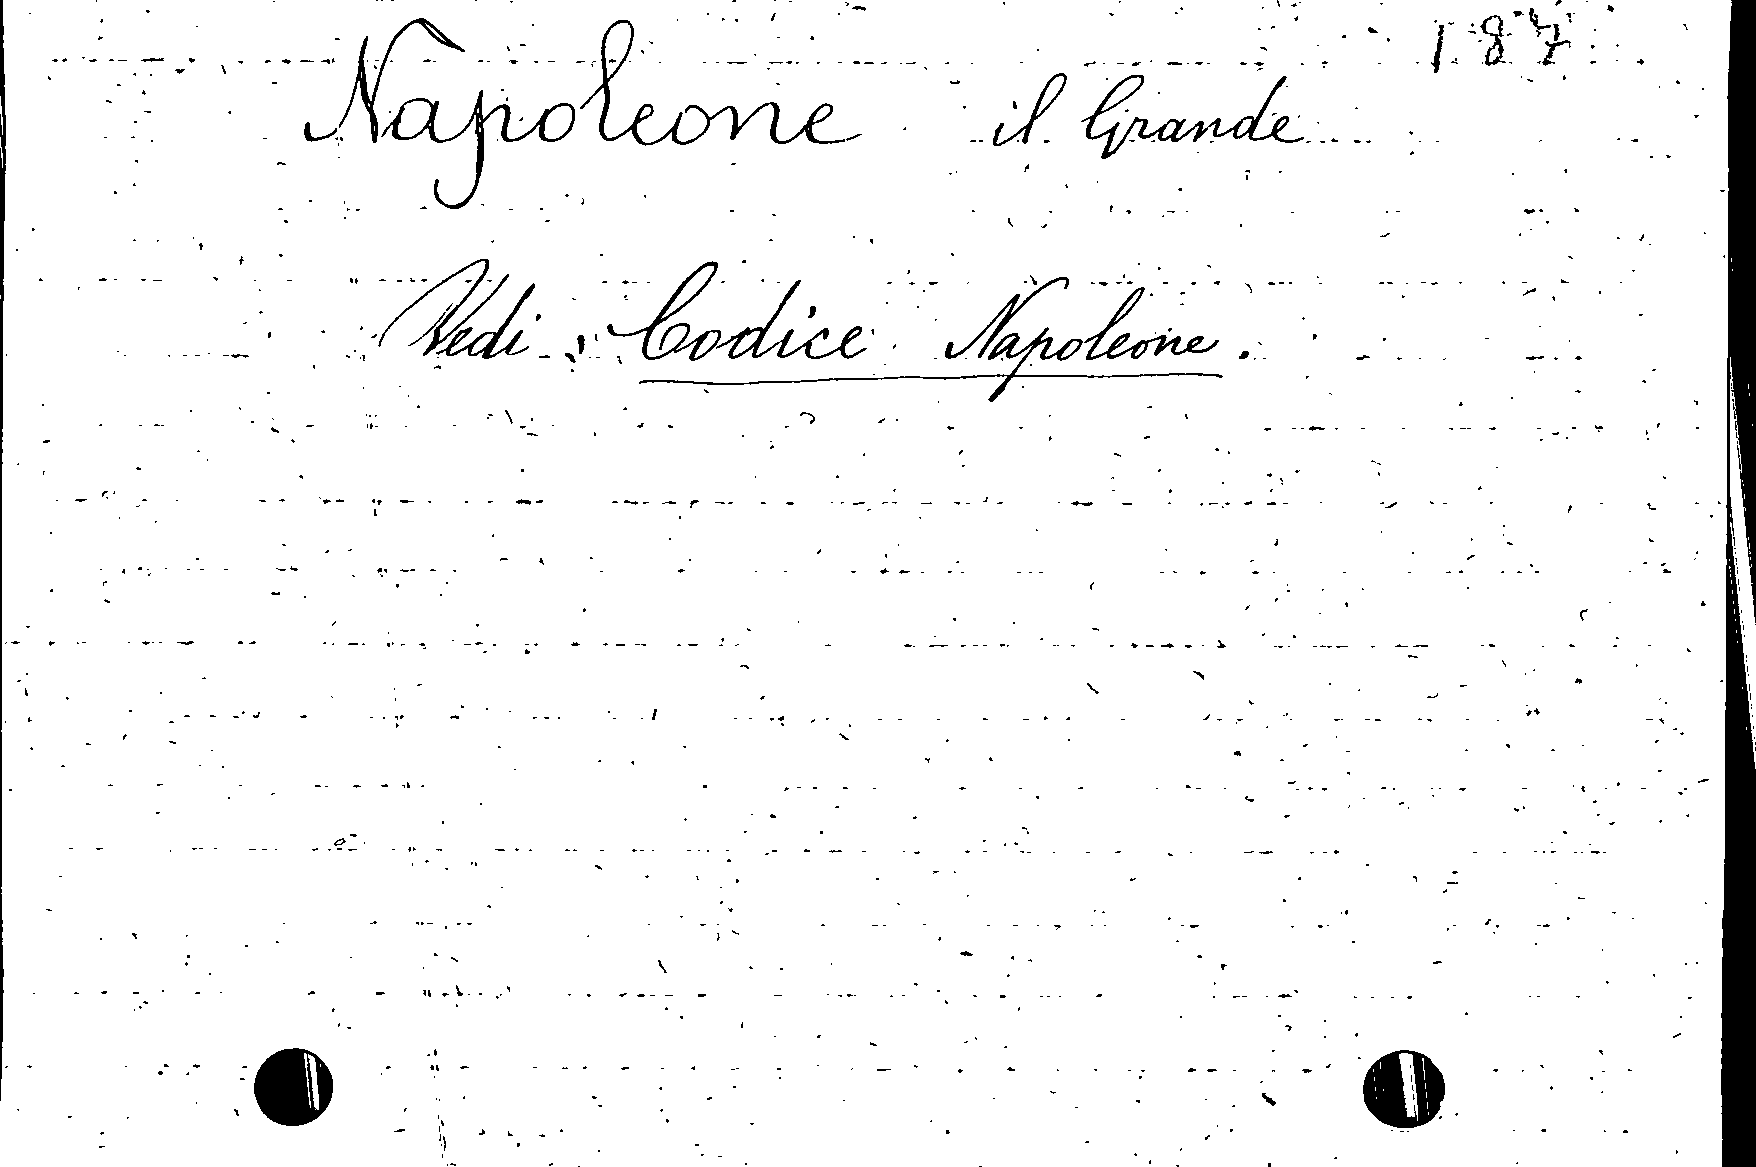 187
Napoleone il Grande
Vedi: Codice Napoleone.